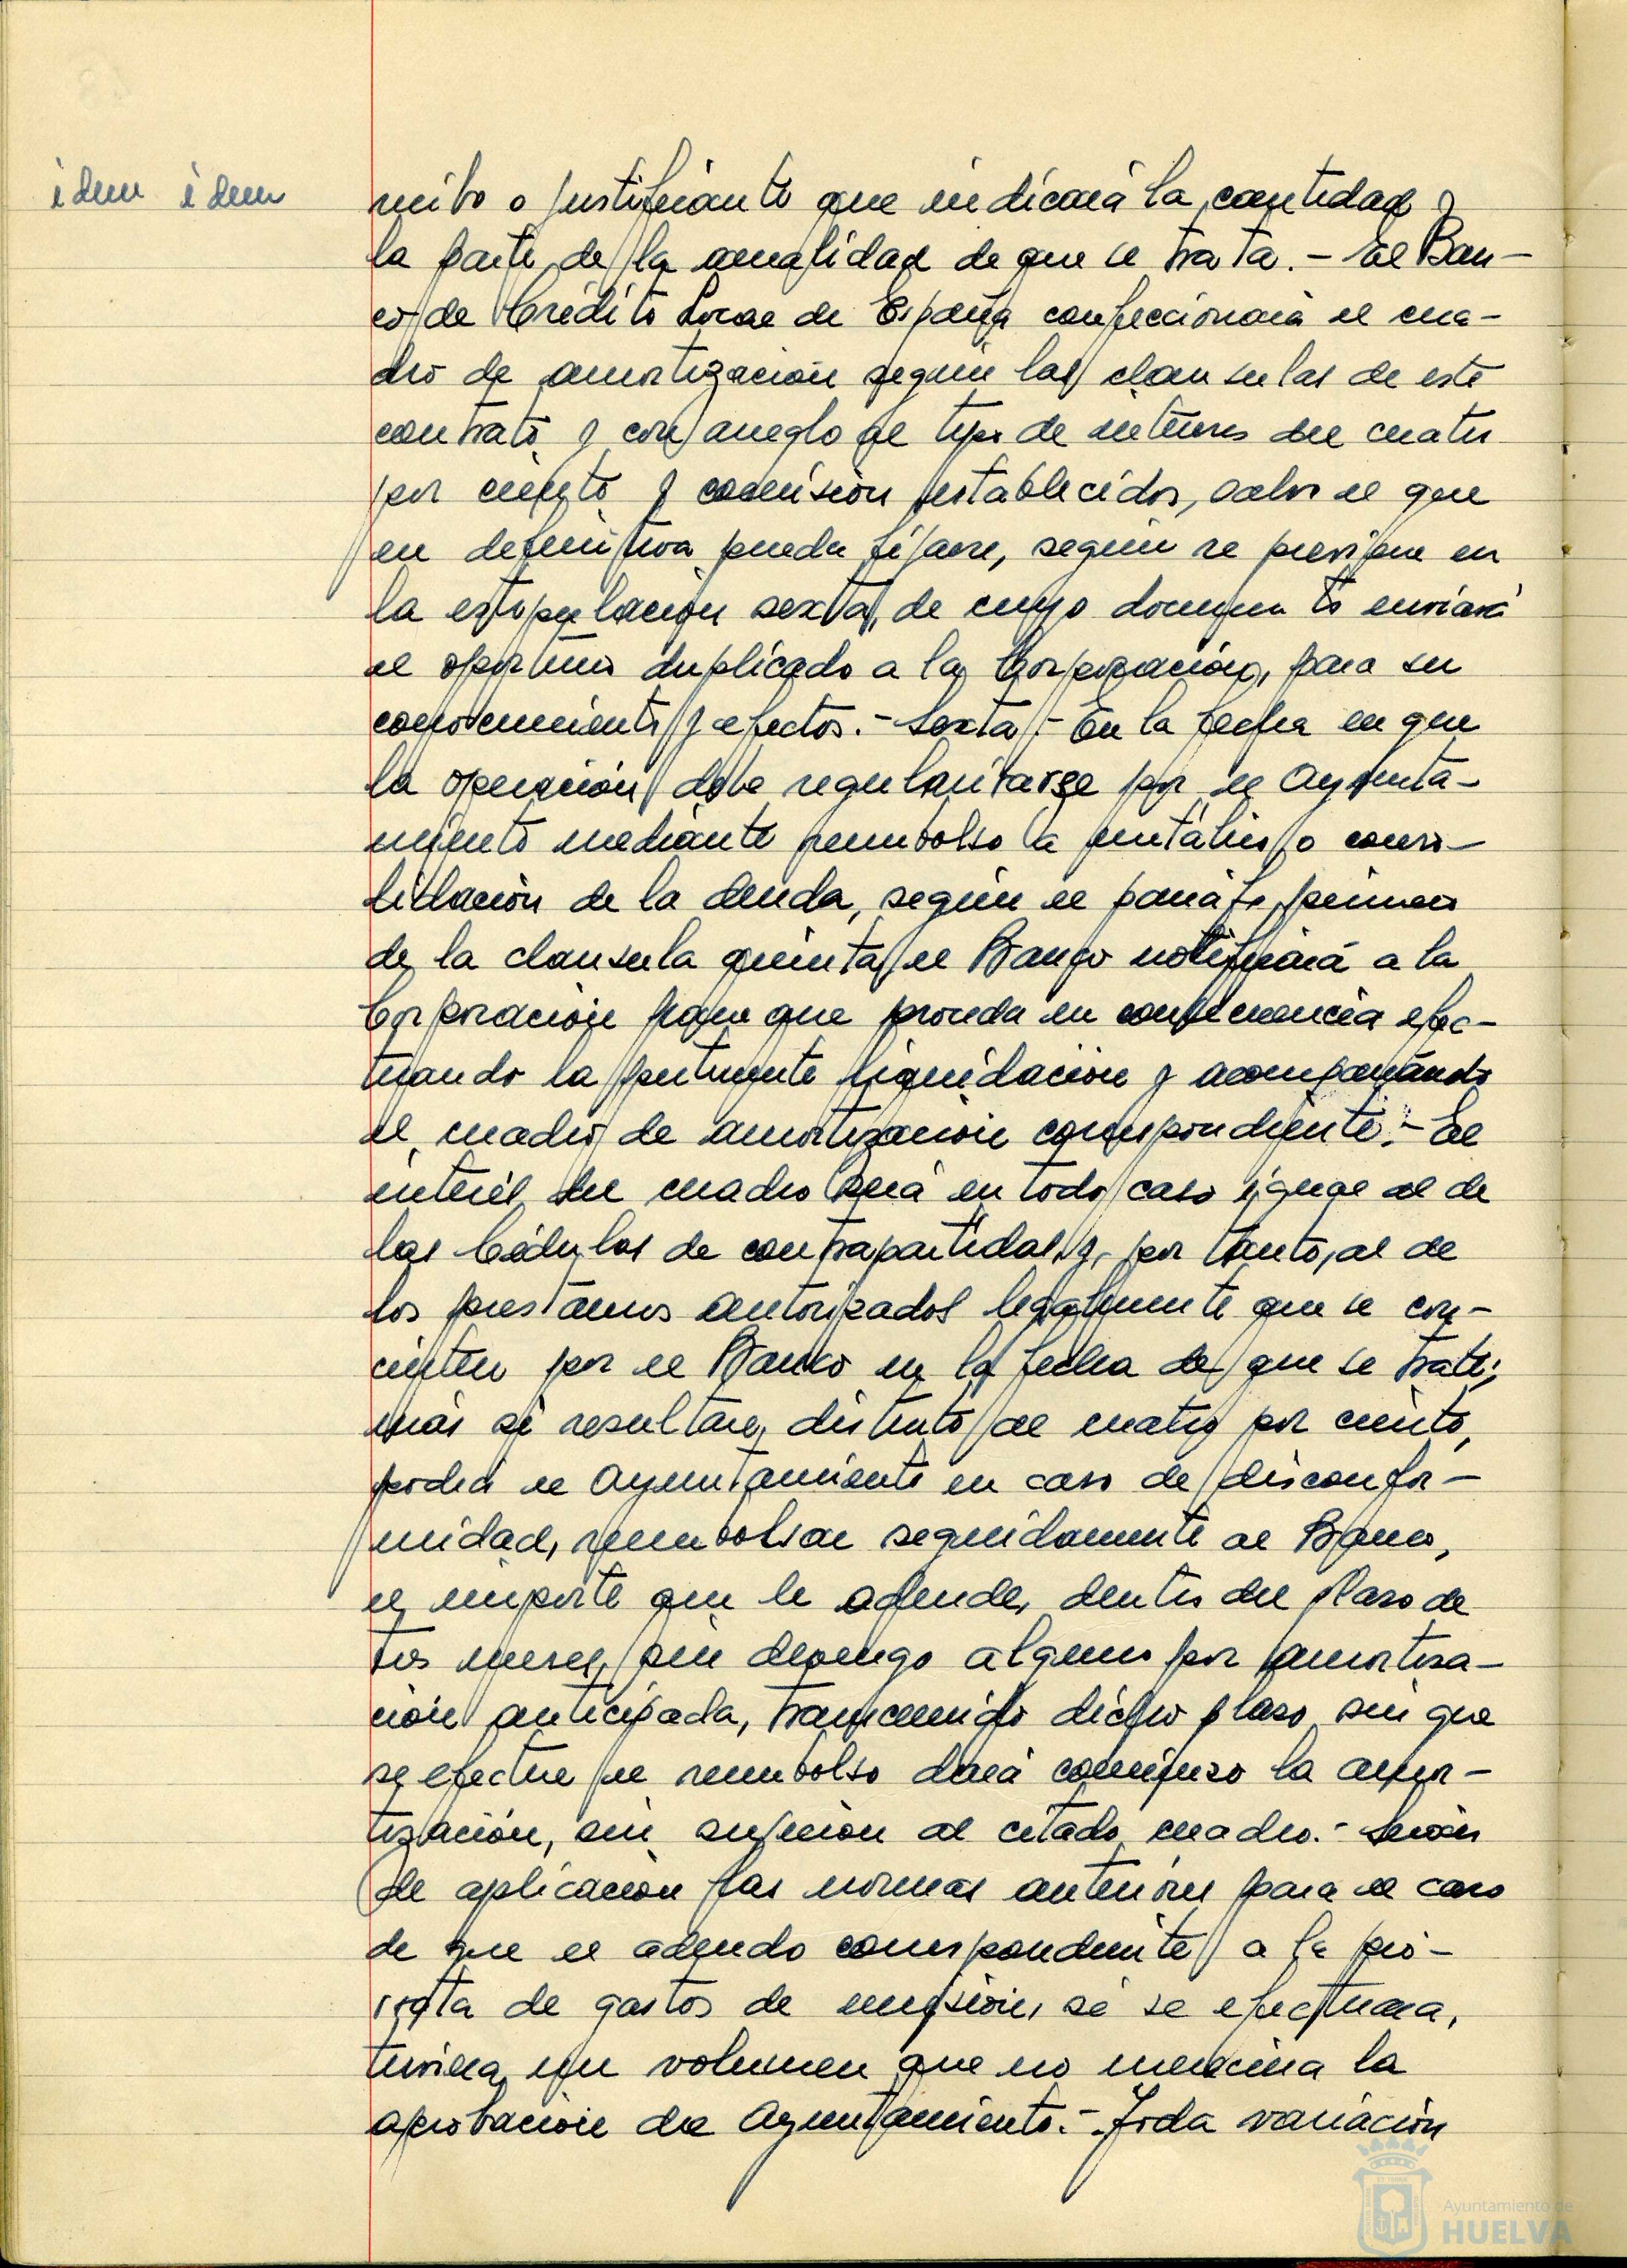 idem idem
recibo o justificante que indicará la cantidad o
la parte de la anualidad de que se trata.- El Ban-
co de Crédito Local de España confeccionará el cua-
dro de amortización según las clausulas de este
contrato y con arreglo al tipo de interés del cuatro
por ciento y comisión establecidos, salvo el que
en definitiva pueda fijarse, según se previene en
la estipulación sexta, de cuyo documento enviará
el oportuno duplicado a la Corporación, para su
conocimiento y efectos.- Sexta.- En la fecha en que
la operación deba regularizarse por el Ayunta-
miento mediante reembolso a metálico o conso-
lidación de la deuda, según el párrafo primero
de la clausula quinta, el Banco notificará a la
Corporación para que proceda en consecuencia efec-
tuando la pertinente liquidación y acompañando
el cuadro de amortización correspondiente.- El
interés del cuadro será en todo caso igual al de
las Cédulas de contrapartidas, y, por tanto, al de
los prestamos autorizados legalmente que se con-
cierten por el Banco en la fecha de que se trate;
más si resultare distinto al cuatro por ciento,
podrá el Ayuntamiento en caso de disconfor-
midad, reembolsar seguidamente al Banco,
el importe que le adeude, dentro del plazo de
tres meses, sin devengo alguno por amortiza-
ción anticipada, transcurrido dicho plazo sin que
se efectue el reembolso dará comienzo la amor-
tización, con sujeción al citado cuadro.- Serán
de aplicación las normas anteriores para el caso
de que el adeudo correspondiente a la pro-
rrata de gastos de emisión, si se efectuara,
tuviera un volumen que no mereciera la
aprobación del Ayuntamiento.- Toda variación
Ayuntamiento de
HUELVA